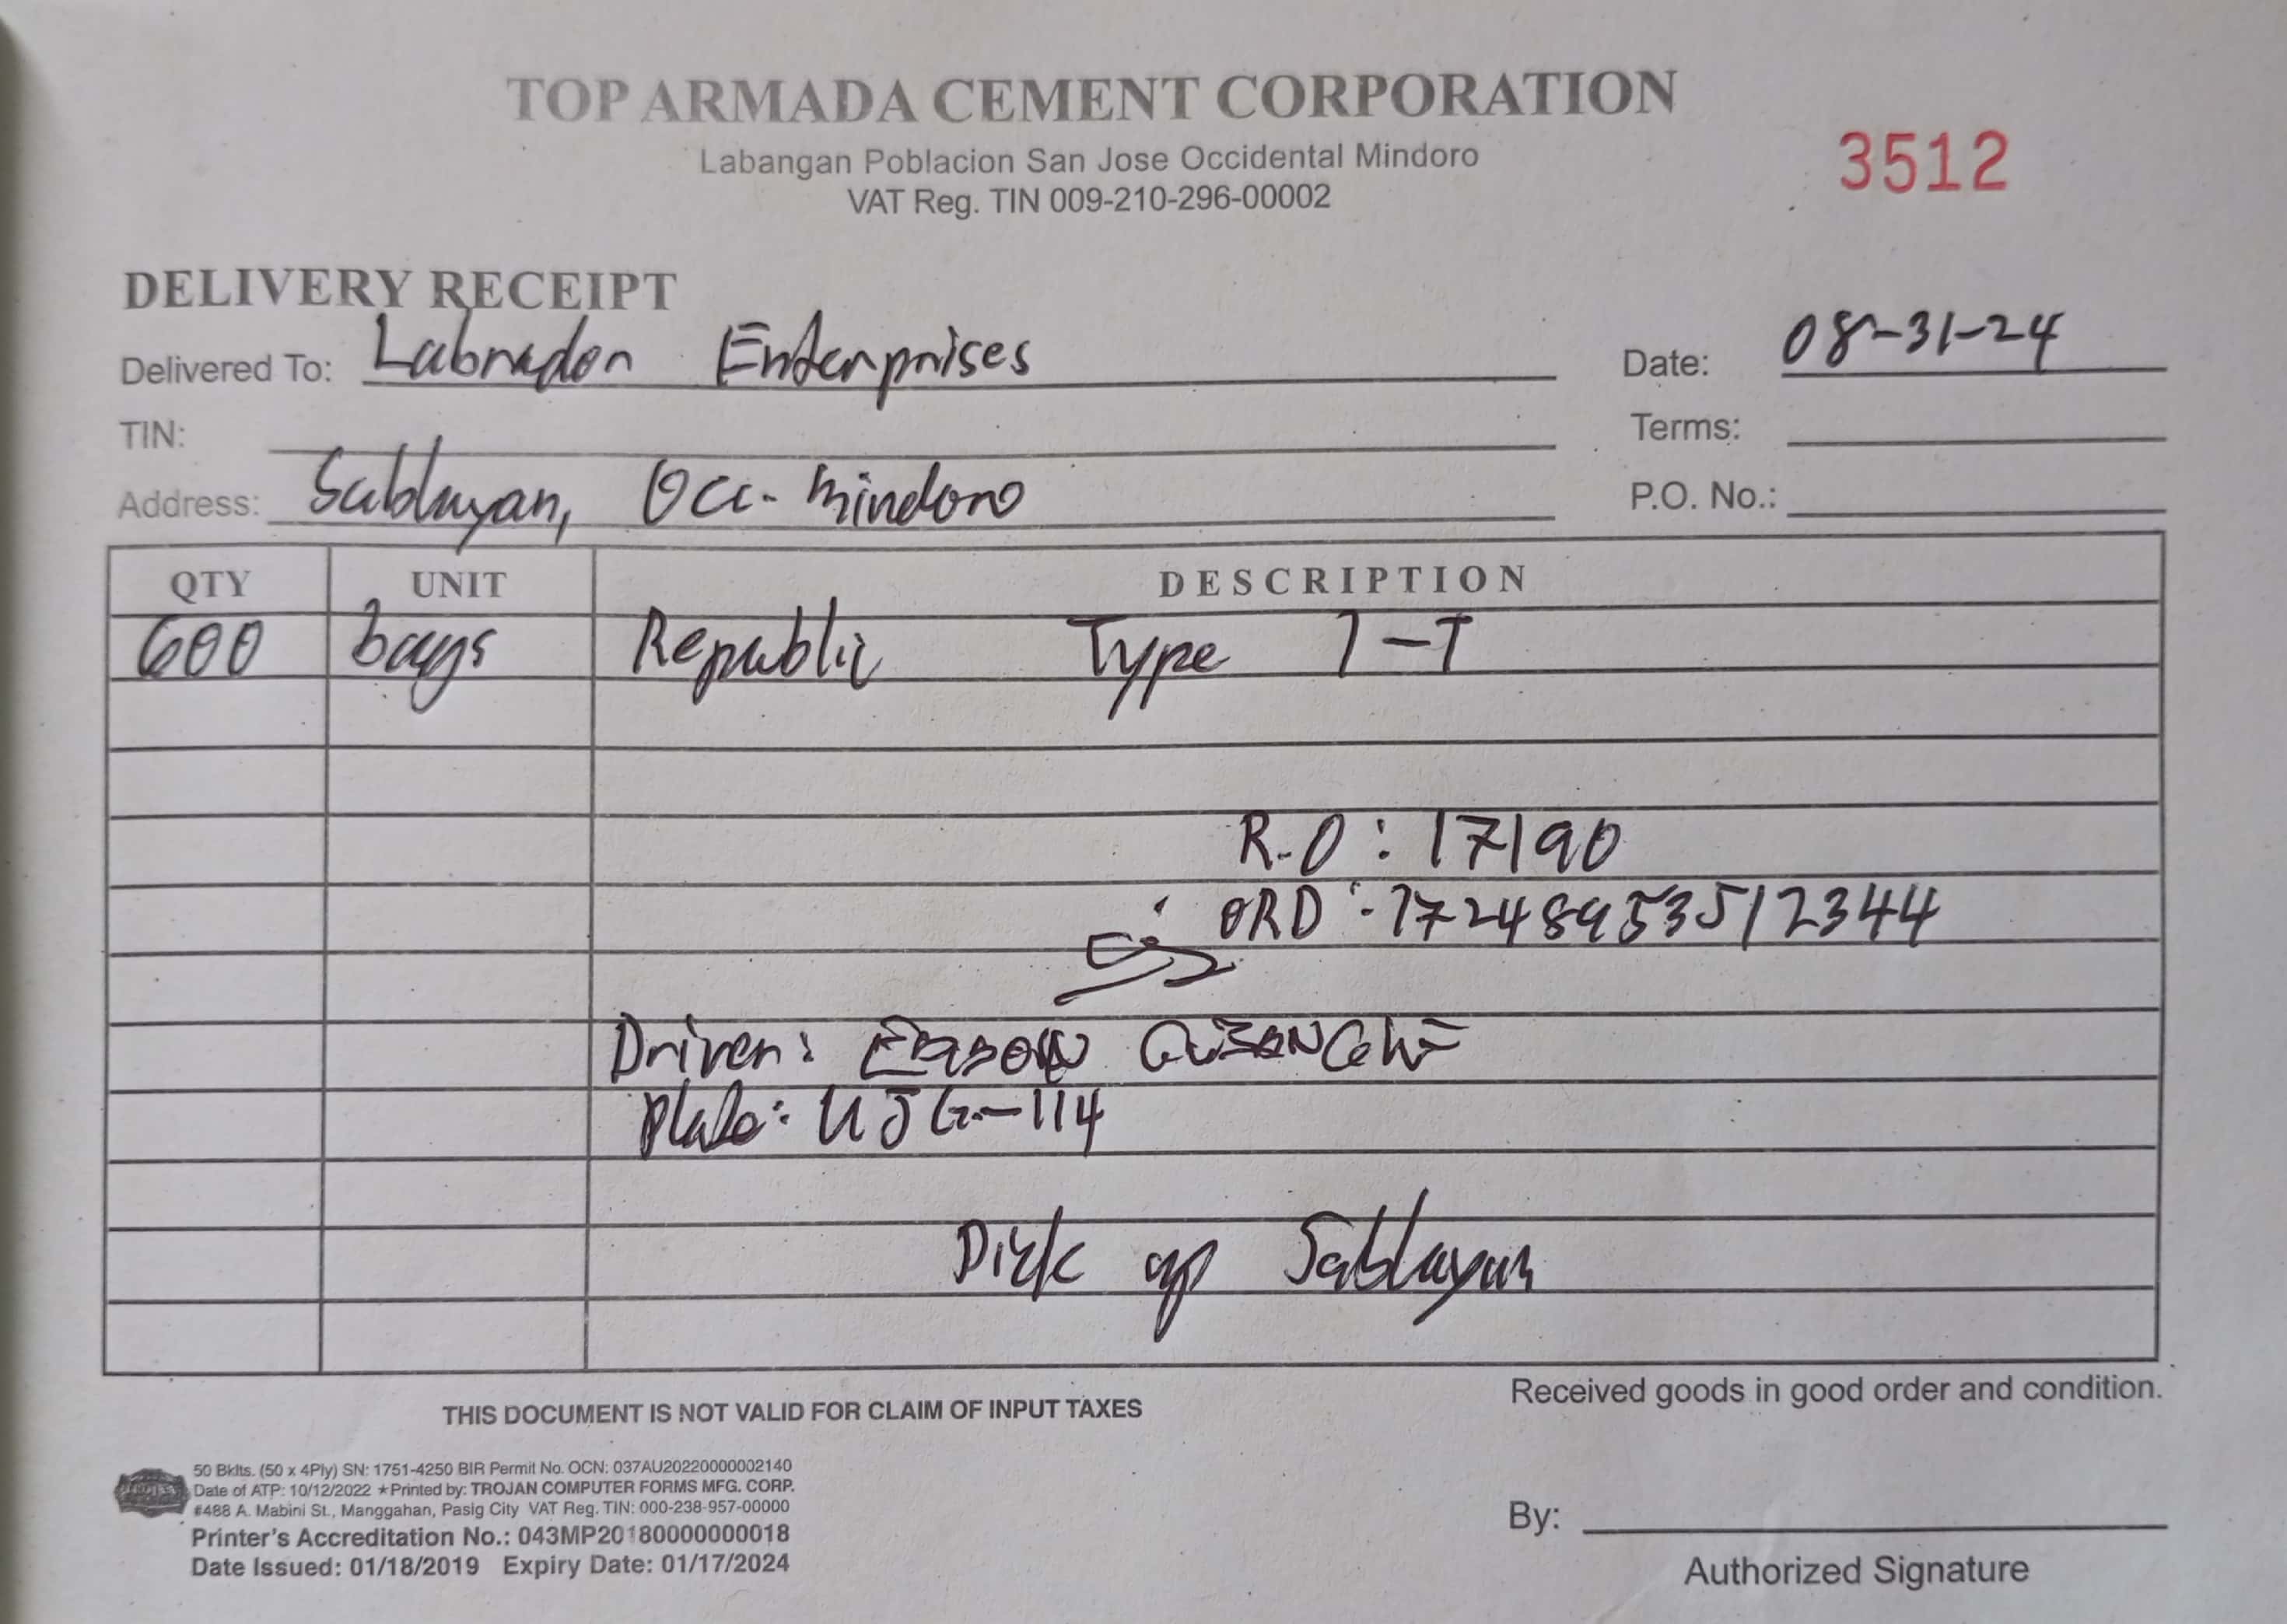 TOP ARMADA CEMENT CORPORATION
Labangan Poblacion San Jose Occidental Mindoro
3512
VAT Reg. TIN 009-210-296-00002
DELIVERY RECEIPT
Delivered To: Labrador Enterprises Date: 08-31-24
TIN: Terms:
Address: Sablayan, Occ. Mindoro P.O. No.:
QTY UNIT DESCRIPTION
600 bags Republic Type 1-T
R.O: 17190
ORD: 1724895351 2344
Driver:
Plate: UJG-114
Pick up Sablayan
THIS DOCUMENT IS NOT VALID FOR CLAIM OF INPUT TAXES
Received goods in good order and condition.
50 Bklts. (50 x 4Ply) SN: 1751-4250 BIR Permit No. OCN: 037AU20220000002140
Date of ATP: 10/12/2022 ★Printed by: TROJAN COMPUTER FORMS MFG. CORP.
#488 A. Mabini St., Manggahan, Pasig City VAT Reg. TIN: 000-238-957-00000
Printer's Accreditation No.: 043MP20180000000018
Date Issued: 01/18/2019 Expiry Date: 01/17/2024
By:
Authorized Signature